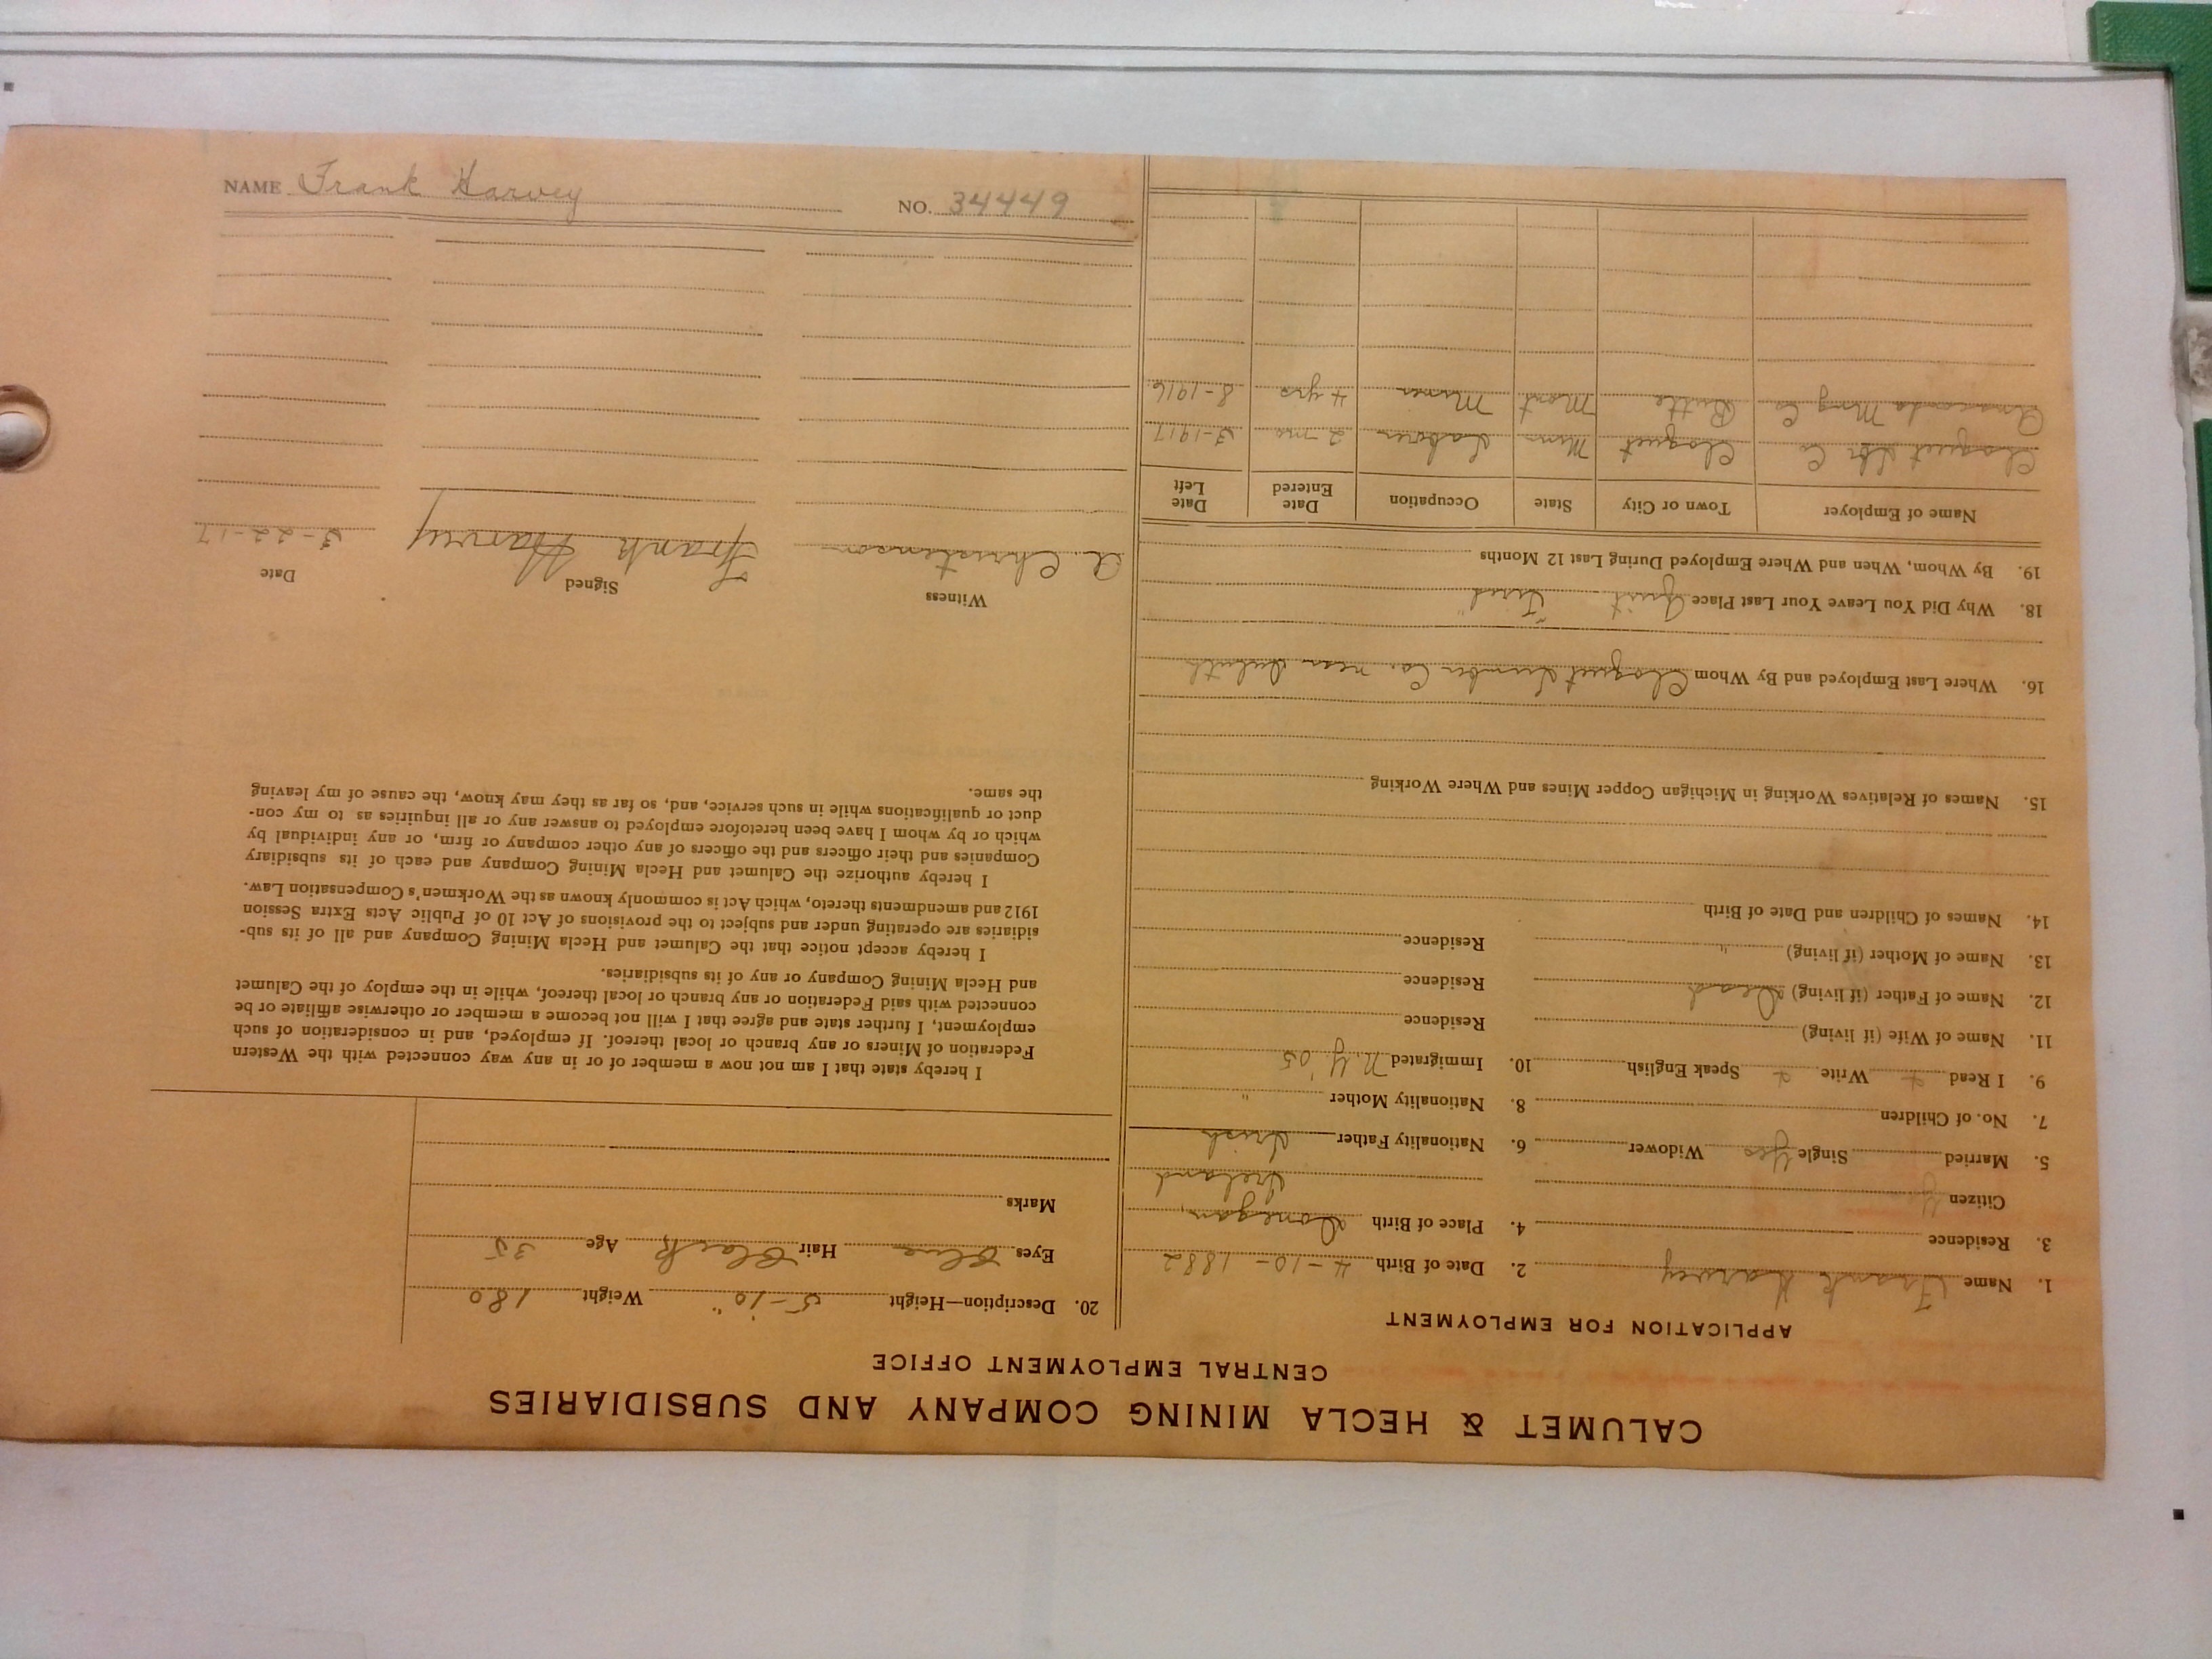 CALUMET & HECLA MINING COMPANY AND SUBSIDIARIES
CENTRAL EMPLOYMENT OFFICE
APPLICATION FOR EMPLOYMENT
1. Name Frank Harvey 2. Date of Birth 4-10-1882
3. Residence 4. Place of Birth Donegan,
Citizen Ireland
5. Married Single Yes Widower 6. Nationality Father Irish
7. No. of Children 8. Nationality Mother "
9. I Read + Write + Speak English 10. Immigrated N.Y. 05
11. Name of Wife (if living) Residence
12. Name of Father (if living) Dead Residence
13. Name of Mother (if living) " Residence
14. Names of Children and Date of Birth
15. Names of Relatives Working in Michigan Copper Mines and Where Working
16. Where Last Employed and By Whom Cloquet Lumber Co. near Duluth
18. Why Did You Leave Your Last Place Quit "Tired"
19. By Whom, When and Where Employed During Last 12 Months
Name of Employer Town or City State Occupation Date Entered Date Left
Cloquet Lbr Co Cloquet Minn Laborer 2 mo 3-1917
Anaconda Mng Co Butte Mont Miner 4 yrs 8-1916
20. Description—Height 5-10" Weight 180
Eyes Blue Hair Black Age 35
Marks
I hereby state that I am not now a member of or in any way connected with the Western
Federation of Miners or any branch or local thereof. If employed, and in consideration of such
employment, I further state and agree that I will not become a member or otherwise affiliate or be
connected with said Federation or any branch or local thereof, while in the employ of the Calumet
and Hecla Mining Company or any of its subsidiaries.
I hereby accept notice that the Calumet and Hecla Mining Company and all of its sub-
sidiaries are operating under and subject to the provisions of Act 10 of Public Acts Extra Session
1912 and amendments thereto, which Act is commonly known as the Workmen's Compensation Law.
I hereby authorize the Calumet and Hecla Mining Company and each of its subsidiary
Companies and their officers and the officers of any other company or firm, or any individual by
which or by whom I have been heretofore employed to answer any or all inquiries as to my con-
duct or qualifications while in such service, and, so far as they may know, the cause of my leaving
the same.
Witness Signed Date
A. Christenson Frank Harvey 3-22-17
NAME Frank Harvey NO. 34449